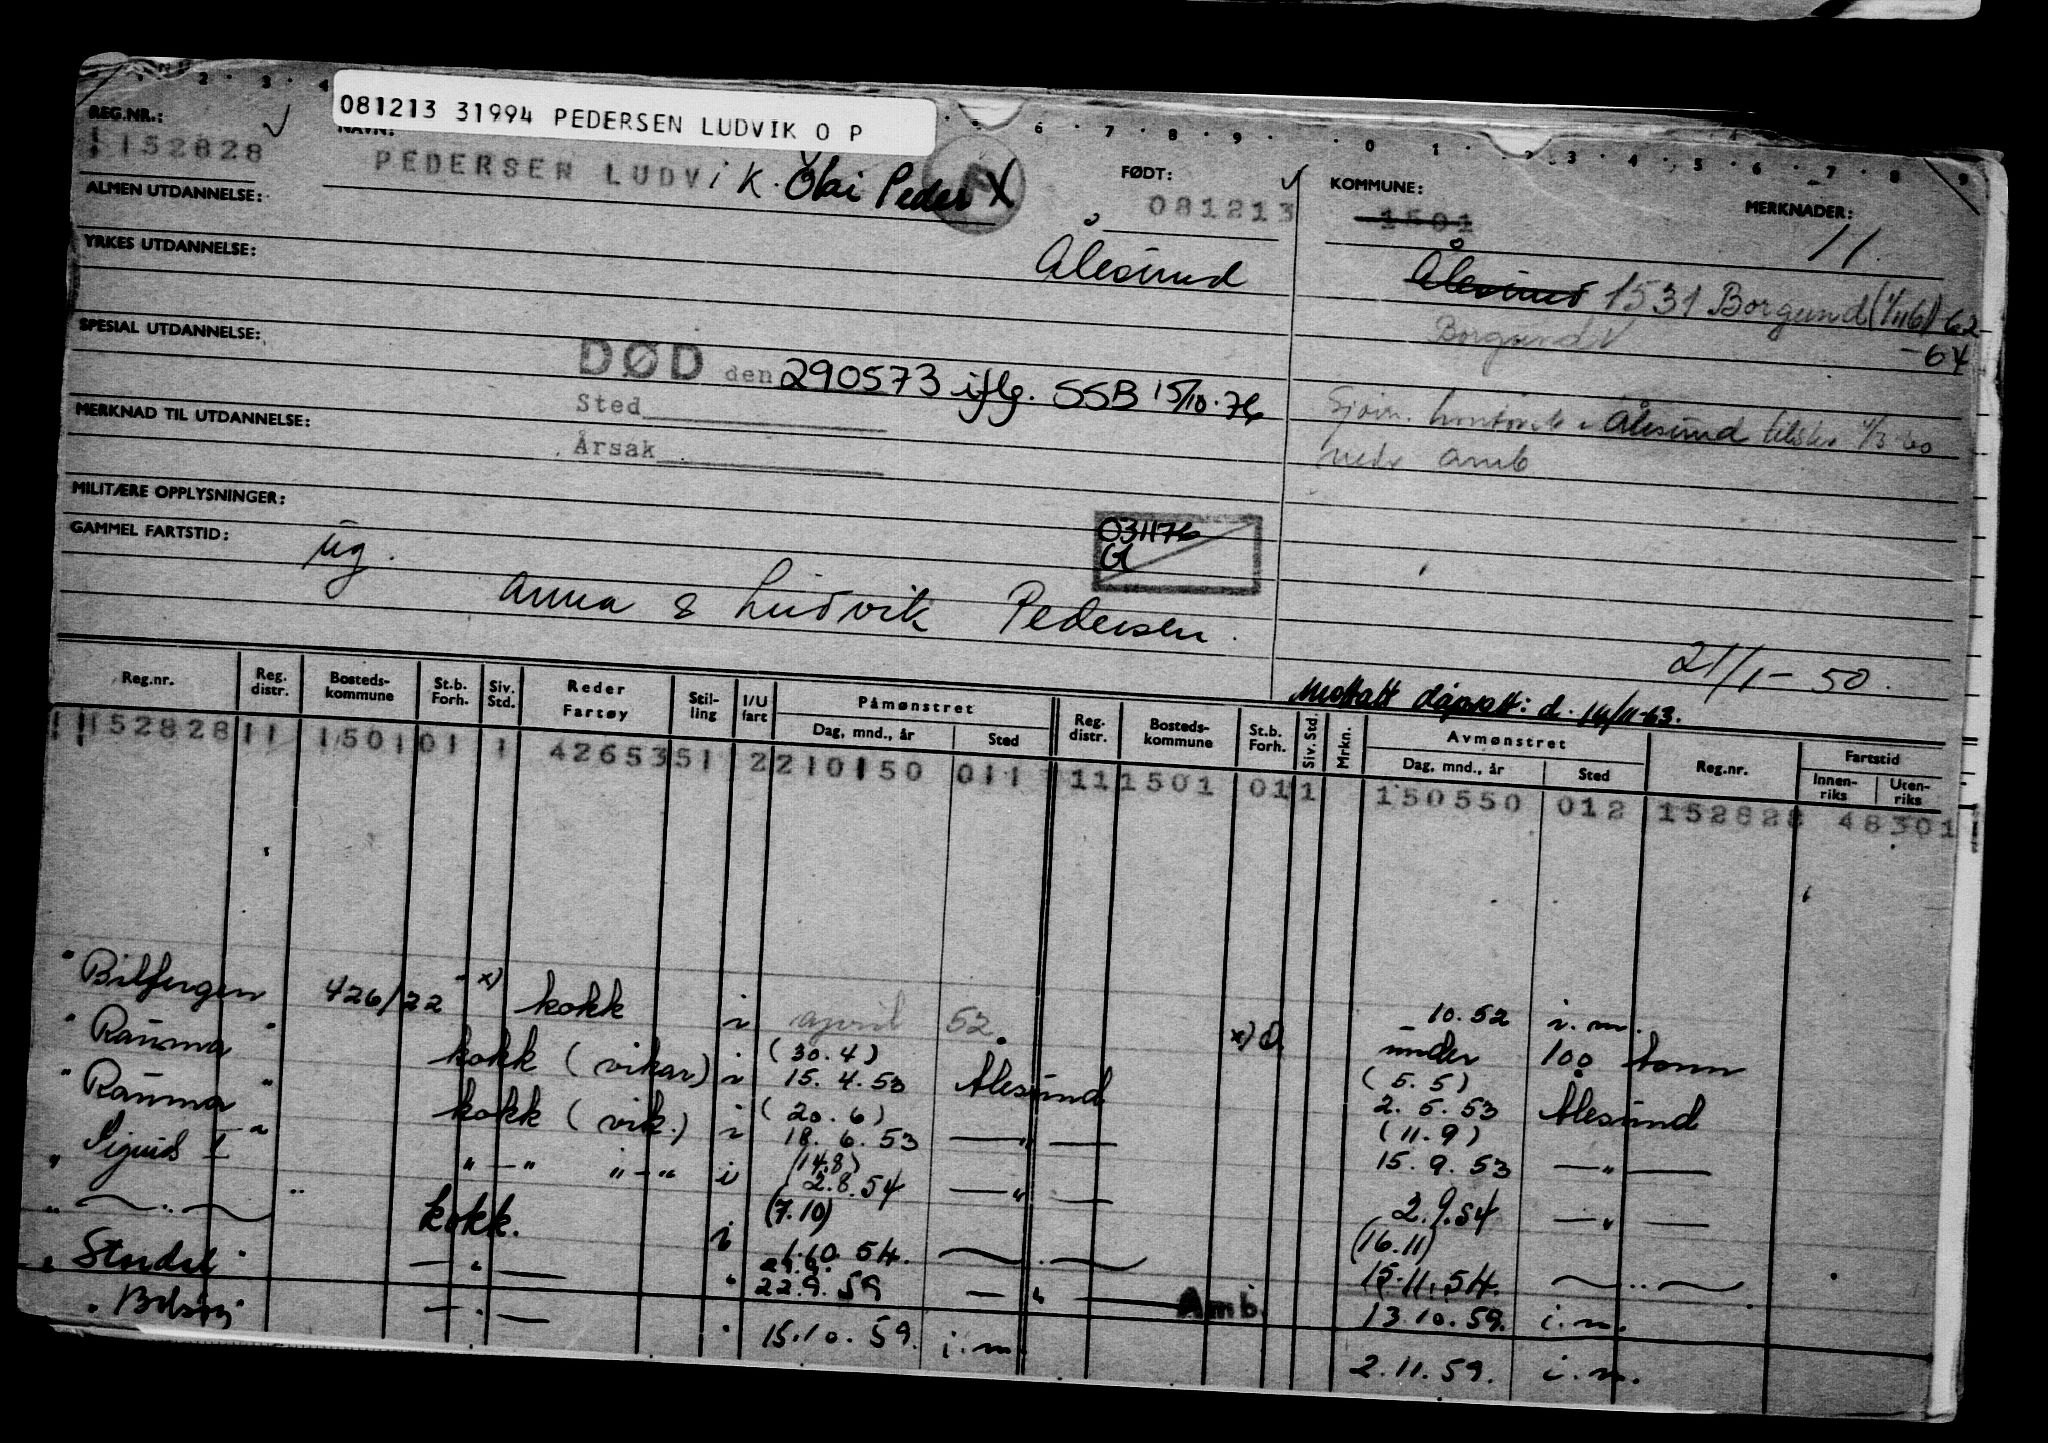 081213 31994 PEDERSEN LUDVIK O P
REG.NR.: NAVN: FØDT: KOMMUNE: MERKNADER:
152828 PEDERSEN LUDVIK. Olai Peder X 081213 1501 11.
ALMEN UTDANNELSE:
YRKES UTDANNELSE: Ålesund Ålesund 1531 Borgund (1/1 16) 62
-64
Borgund
SPESIAL UTDANNELSE:
DØD den 290573 iflg. SSB 15/10-76
Sted
MERKNAD TIL UTDANNELSE: i Ålesund 1/3-60
Årsak amb
MILITÆRE OPPLYSNINGER:
031176
G
GAMMEL FARTSTID: ug.
Anna & Ludvik Pedersen.
21/1-50.
Mottatt dåpsatt: d. 14/11-63.
Reg.nr. Reg. distr. Bosteds-kommune St.b. Forh. Siv. Std. Reder Fartøy Stil-ling I/U fart Påmønstret Dag, mnd., år Sted Reg. distr. Bosteds-kommune St.b. Forh. Siv. Std. Mrkn. Avmønstret Dag, mnd., år Sted Reg.nr. Fartstid Innen-riks Uten-riks
152828 11 1501 01 1 42653 51 2 210150 011 11 1501 01 1 150550 012 152828 48301
" Bilfergen 426/22 - x) kokk i april 52. 10.52 i.m.
x) under 100 tonn
" Rauma " kokk (vikar) i (30.4) 15.4.53 Ålesund (5.5) 2.5.53 Ålesund
" Rauma " kokk (vik.) i (20.6) 18.6.53 —"— (11.9) 15.9.53 —"—
" Sigurd I " "—" "—" i (14.8) 2.8.54 —"— 2.9.54 —"—
" —"— " kokk. i (7.10) 1.10.54. —"— (16.11) 15.11.54. —"—
" Stordal " —"— " 22.9.59 —"— Amb. 13.10.59. i.m.
" " —"— " 15.10.59. i.m. 2.11.59. i.m.